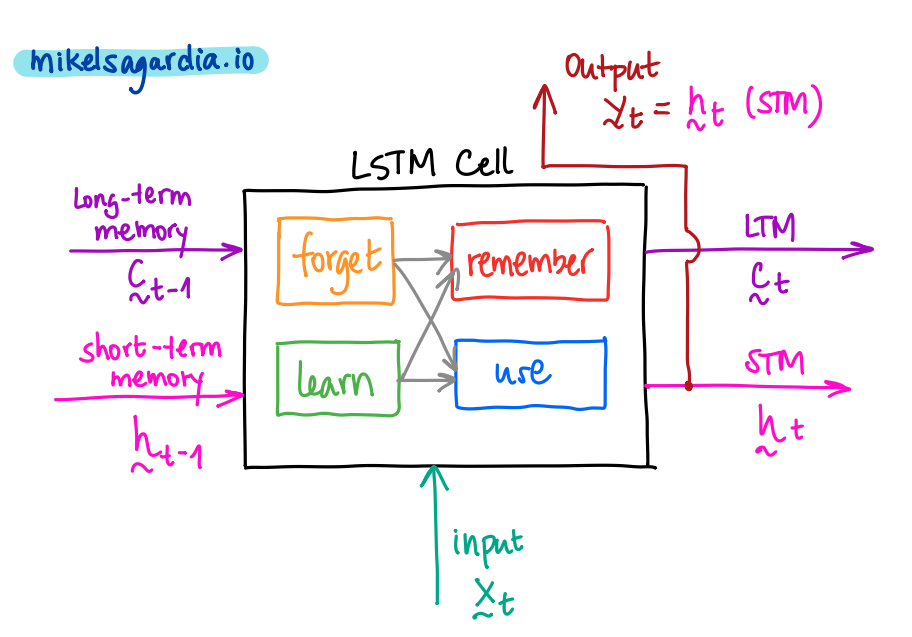 mikelsagardia.io
Output
y_t = h_t (STM)
LSTM Cell
long-term
memory
C_t-1
short-term
memory
h_t-1
forget
remember
learn
use
LTM
C_t
STM
h_t
input
x_t